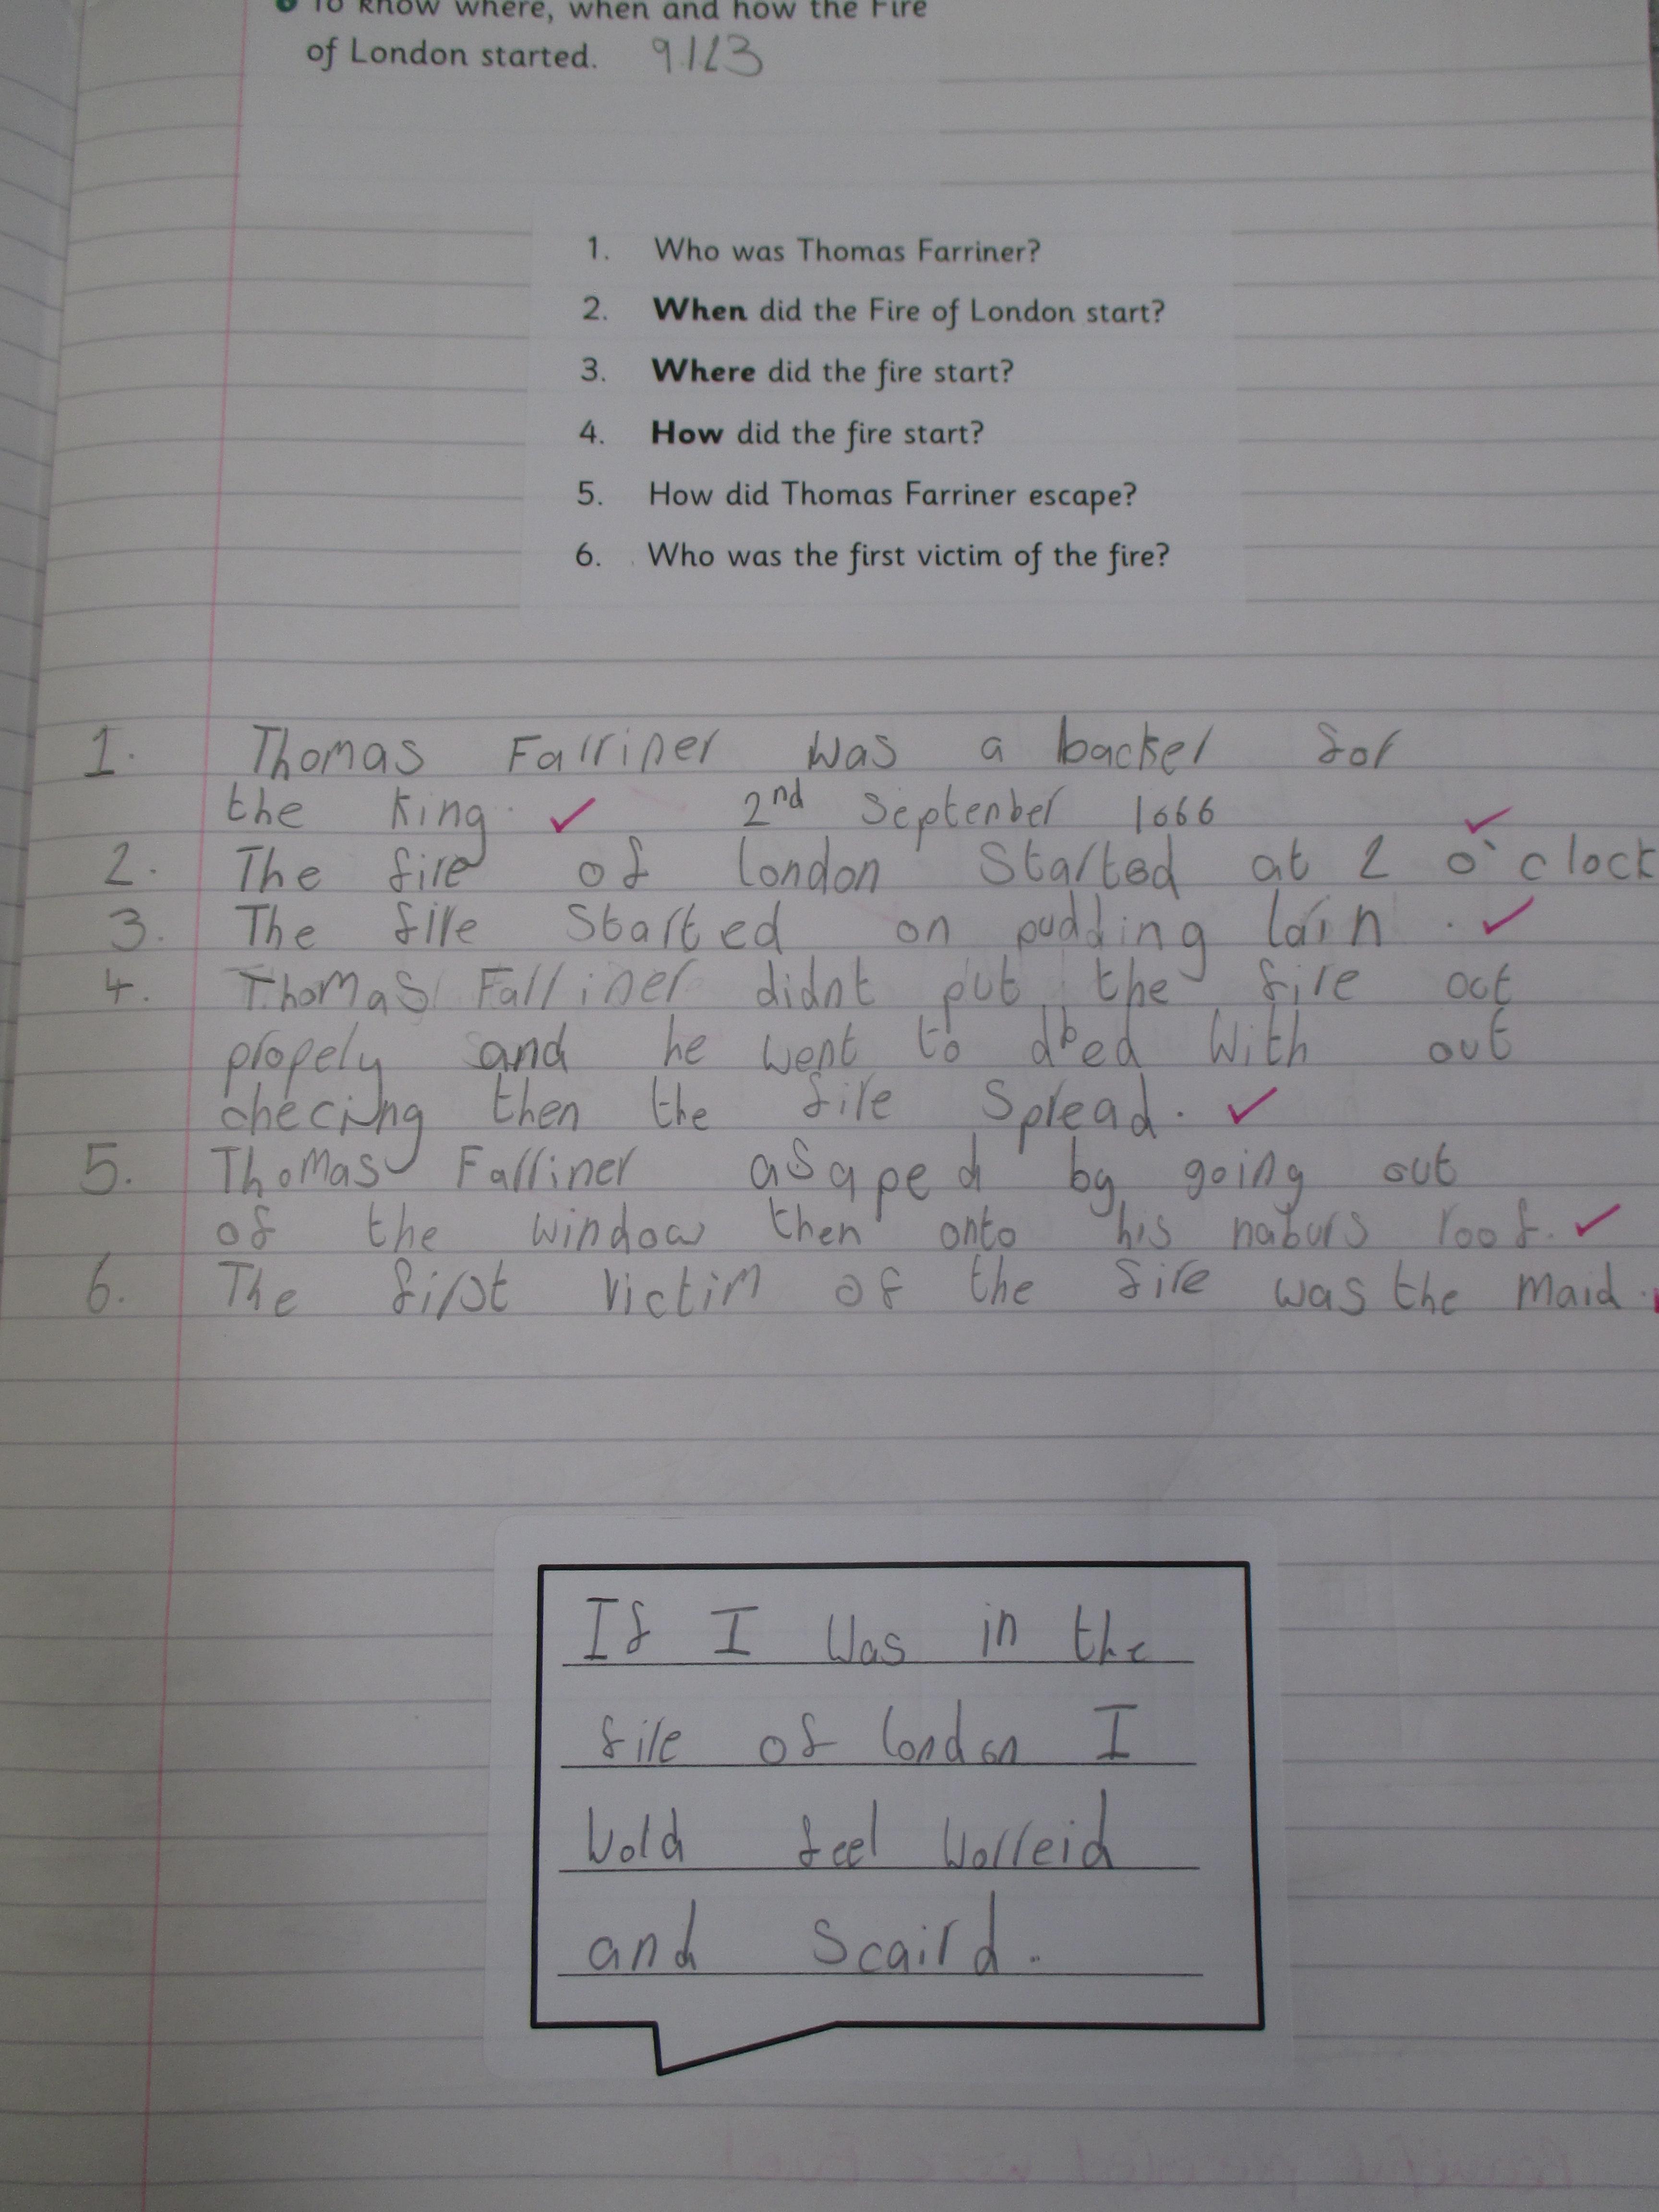 To know where, when and how the Fire
of London started. 9.1.23
1. Who was Thomas Farriner?
2. When did the Fire of London start?
3. Where did the fire start?
4. How did the fire start?
5. How did Thomas Farriner escape?
6. Who was the first victim of the fire?
1. Thomas Farriner was a backer for
the king. 2nd September 1666
2. The fire of london started at 2 o'clock
3. The fire started on pudding lain.
4. Thomas Farriner didnt put the fire out
propely and he went to bed with out
checing then the fire spread.
5. Thomas Farriner asaped by going out
of the window then onto his naburs roof.
6. The first victim of the fire was the maid.
If I was in the
fire of london I
wold feel worreid
and scaird.